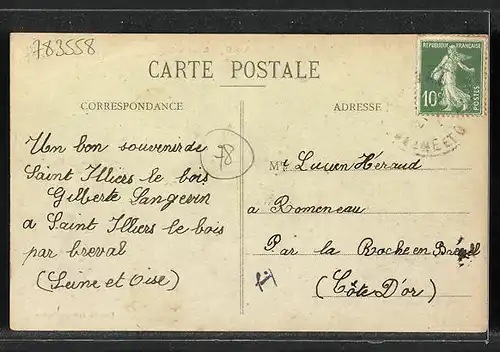 783558
CARTE POSTALE
RÉPUBLIQUE FRANÇAISE
10c
POSTES
CORRESPONDANCE
ADRESSE
Un bon souvenir de
Saint Illiers le bois
Gilberte Langevin
a Saint Illiers le bois
par breval
(Seine et Oise)
78
Mr Lucien Héraud
a Romeneau
Par la Roche en Brénil
(Côte D'or)